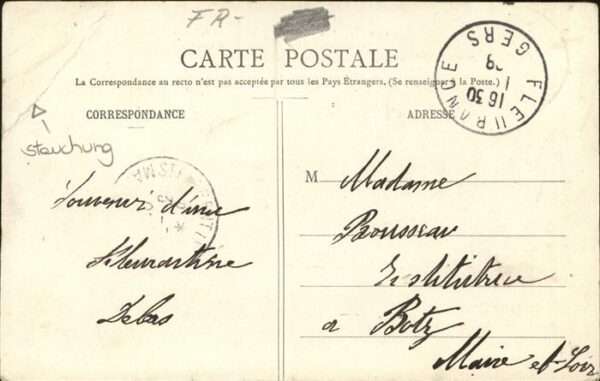 FR-
CARTE POSTALE
La Correspondance au recto n'est pas acceptée par tous les Pays Étrangers. (Se renseigner à la Poste.)
CORRESPONDANCE
ADRESSE
FLEURANCE
GERS
16 30
stauchung
Souvenir d'une
Fleurantine
Debas
M Madame
Rousseau
Institutrice
a Botz
Maine et-Loir